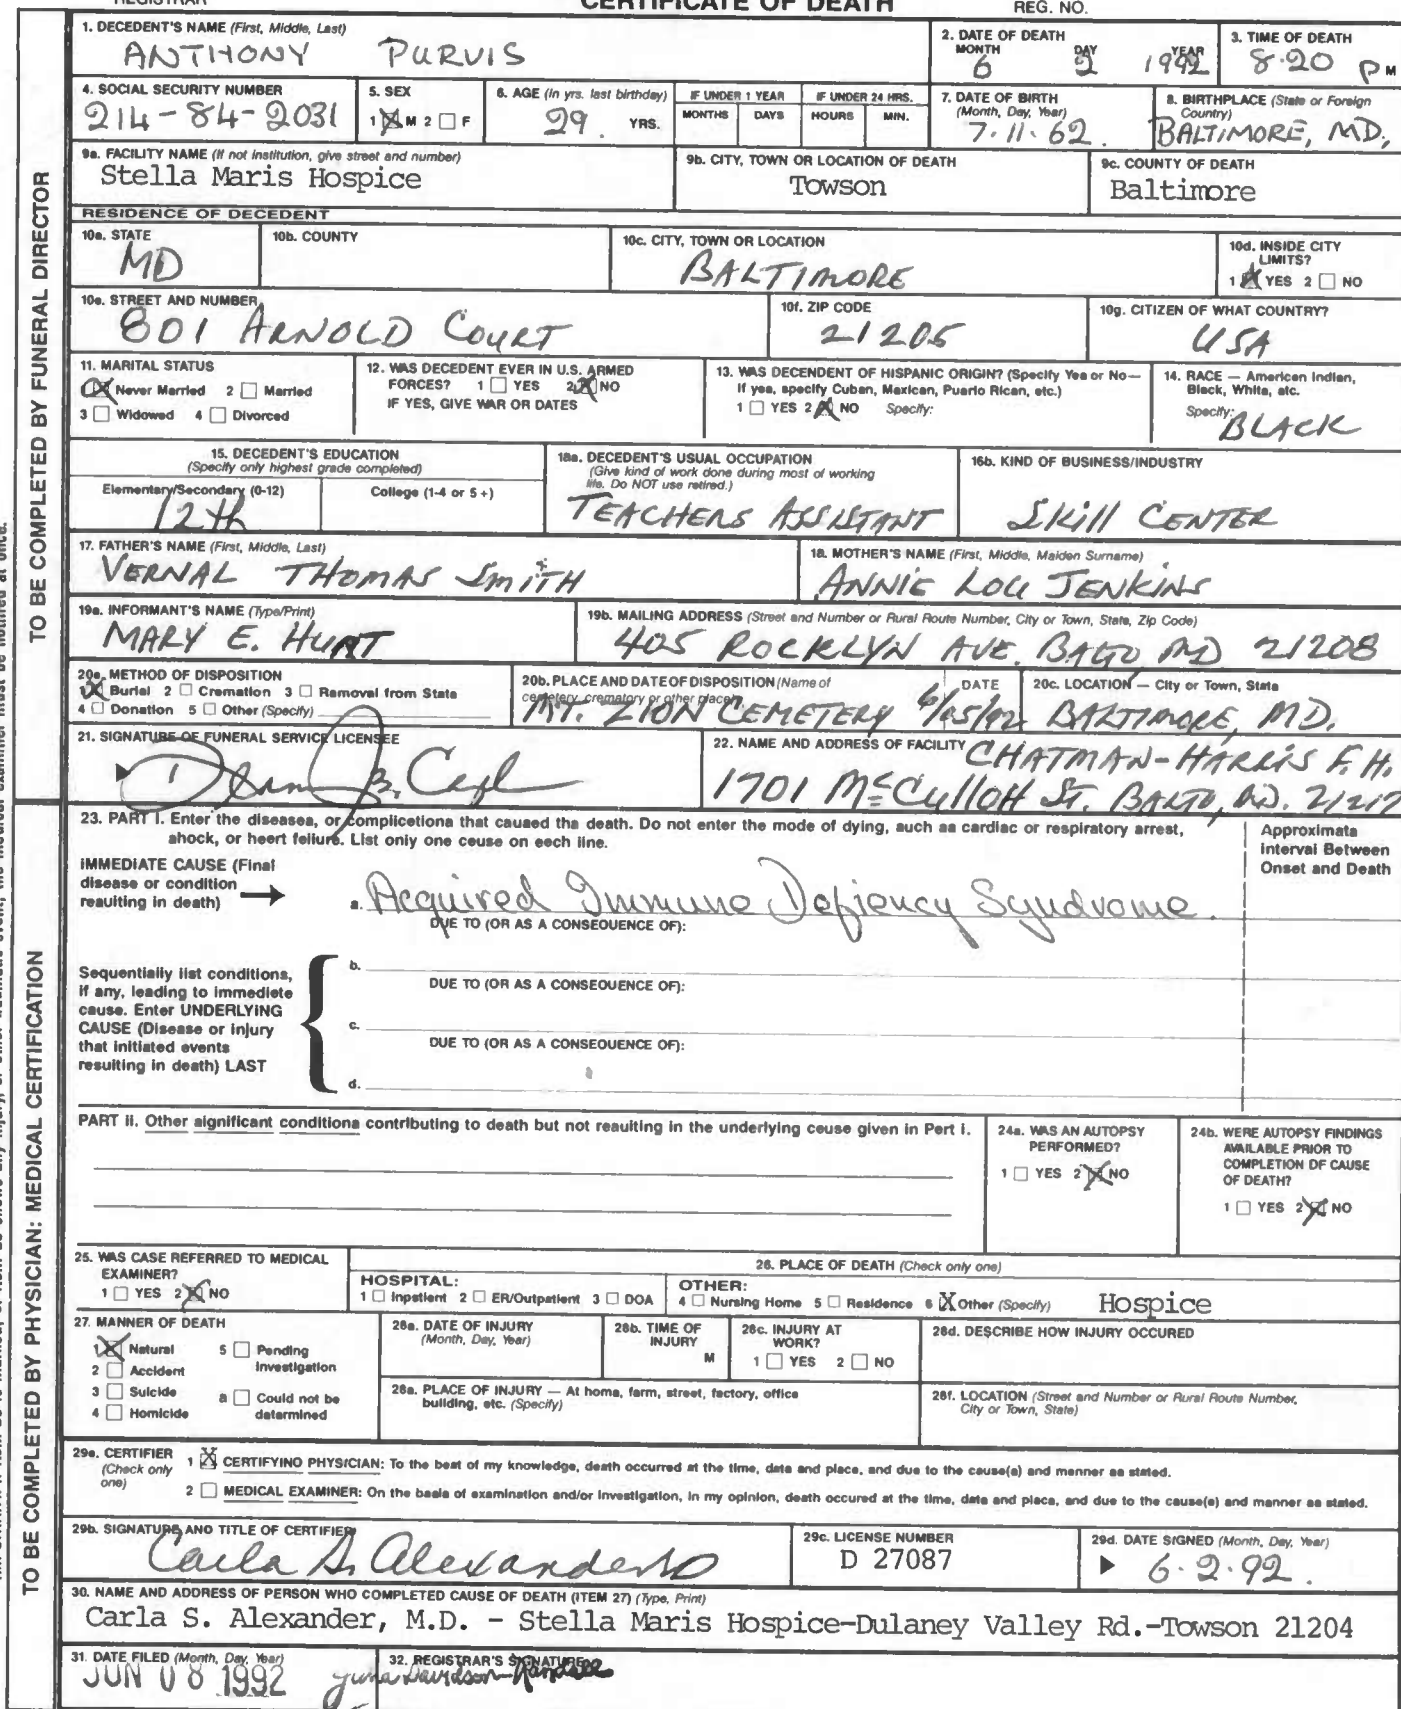 REGISTRAR
CERTIFICATE OF DEATH
REG. NO.
TO BE COMPLETED BY FUNERAL DIRECTOR
1. DECEDENT'S NAME (First, Middle, Last)
ANTHONY PURVIS
2. DATE OF DEATH
MONTH DAY YEAR
6 2 1992
3. TIME OF DEATH
8:20 P M
4. SOCIAL SECURITY NUMBER
214-84-2031
5. SEX
1 X M 2 ☐ F
6. AGE (In yrs. last birthday)
29. YRS.
IF UNDER 1 YEAR
MONTHS DAYS
IF UNDER 24 HRS.
HOURS MIN.
7. DATE OF BIRTH
(Month, Day, Year)
7.11.62.
8. BIRTHPLACE (State or Foreign
Country)
BALTIMORE, MD,
9a. FACILITY NAME (If not institution, give street and number)
Stella Maris Hospice
9b. CITY, TOWN OR LOCATION OF DEATH
Towson
9c. COUNTY OF DEATH
Baltimore
RESIDENCE OF DECEDENT
10a. STATE
MD
10b. COUNTY
10c. CITY, TOWN OR LOCATION
BALTIMORE
10d. INSIDE CITY
LIMITS?
1 X YES 2 ☐ NO
10e. STREET AND NUMBER
801 ARNOLD COURT
10f. ZIP CODE
21205
10g. CITIZEN OF WHAT COUNTRY?
USA
11. MARITAL STATUS
1 X Never Married 2 ☐ Married
3 ☐ Widowed 4 ☐ Divorced
12. WAS DECEDENT EVER IN U.S. ARMED
FORCES? 1 ☐ YES 2 X NO
IF YES, GIVE WAR OR DATES
13. WAS DECENDENT OF HISPANIC ORIGIN? (Specify Yes or No—
If yes, specify Cuban, Mexican, Puerto Rican, etc.)
1 ☐ YES 2 X NO Specify:
14. RACE — American Indian,
Black, White, etc.
Specify:
BLACK
15. DECEDENT'S EDUCATION
(Specify only highest grade completed)
Elementary/Secondary (0-12) College (1-4 or 5+)
12th
16a. DECEDENT'S USUAL OCCUPATION
(Give kind of work done during most of working
life. Do NOT use retired.)
TEACHERS ASSISTANT
16b. KIND OF BUSINESS/INDUSTRY
SKILL CENTER
17. FATHER'S NAME (First, Middle, Last)
VERNAL THOMAS SMITH
18. MOTHER'S NAME (First, Middle, Maiden Surname)
ANNIE LOU JENKINS
19a. INFORMANT'S NAME (Type/Print)
MARY E. HUNT
19b. MAILING ADDRESS (Street and Number or Rural Route Number, City or Town, State, Zip Code)
405 ROCKLYN AVE. BALTO, MD 21208
20a. METHOD OF DISPOSITION
1 X Burial 2 ☐ Cremation 3 ☐ Removal from State
4 ☐ Donation 5 ☐ Other (Specify)
20b. PLACE AND DATE OF DISPOSITION (Name of
cemetery, crematory or other place)
DATE
MT. ZION CEMETERY 6/05/92
20c. LOCATION — City or Town, State
BALTIMORE, MD.
21. SIGNATURE OF FUNERAL SERVICE LICENSEE
22. NAME AND ADDRESS OF FACILITY
CHATMAN-HARRIS F.H.
1701 McCULLOH ST. BALTO, MD. 21217
TO BE COMPLETED BY PHYSICIAN: MEDICAL CERTIFICATION
23. PART I. Enter the diseases, or complications that caused the death. Do not enter the mode of dying, such as cardiac or respiratory arrest,
shock, or heart failure. List only one cause on each line.
Approximate
Interval Between
Onset and Death
IMMEDIATE CAUSE (Final
disease or condition
resulting in death) →
a. Acquired Immune Defiency Syndrome.
DUE TO (OR AS A CONSEQUENCE OF):
Sequentially list conditions,
if any, leading to immediate
cause. Enter UNDERLYING
CAUSE (Disease or injury
that initiated events
resulting in death) LAST
b.
DUE TO (OR AS A CONSEQUENCE OF):
c.
DUE TO (OR AS A CONSEQUENCE OF):
d.
PART II. Other significant conditions contributing to death but not resulting in the underlying cause given in Part I.
24a. WAS AN AUTOPSY
PERFORMED?
1 ☐ YES 2 X NO
24b. WERE AUTOPSY FINDINGS
AVAILABLE PRIOR TO
COMPLETION OF CAUSE
OF DEATH?
1 ☐ YES 2 X NO
25. WAS CASE REFERRED TO MEDICAL
EXAMINER?
1 ☐ YES 2 X NO
26. PLACE OF DEATH (Check only one)
HOSPITAL:
1 ☐ Inpatient 2 ☐ ER/Outpatient 3 ☐ DOA
OTHER:
4 ☐ Nursing Home 5 ☐ Residence 6 X Other (Specify) Hospice
27. MANNER OF DEATH
1 X Natural 5 ☐ Pending
Investigation
2 ☐ Accident
3 ☐ Suicide 8 ☐ Could not be
determined
4 ☐ Homicide
28a. DATE OF INJURY
(Month, Day, Year)
28b. TIME OF
INJURY
M
28c. INJURY AT
WORK?
1 ☐ YES 2 ☐ NO
28d. DESCRIBE HOW INJURY OCCURED
28e. PLACE OF INJURY — At home, farm, street, factory, office
building, etc. (Specify)
28f. LOCATION (Street and Number or Rural Route Number,
City or Town, State)
29a. CERTIFIER
(Check only
one)
1 X CERTIFYING PHYSICIAN: To the best of my knowledge, death occurred at the time, date and place, and due to the cause(s) and manner as stated.
2 ☐ MEDICAL EXAMINER: On the basis of examination and/or investigation, in my opinion, death occured at the time, date and place, and due to the cause(s) and manner as stated.
29b. SIGNATURE AND TITLE OF CERTIFIER
Carla S. Alexander MD
29c. LICENSE NUMBER
D 27087
29d. DATE SIGNED (Month, Day, Year)
6.2.92.
30. NAME AND ADDRESS OF PERSON WHO COMPLETED CAUSE OF DEATH (ITEM 27) (Type, Print)
Carla S. Alexander, M.D. - Stella Maris Hospice-Dulaney Valley Rd.-Towson 21204
31. DATE FILED (Month, Day, Year)
JUN 08 1992
32. REGISTRAR'S SIGNATURE
Davidson-Randall